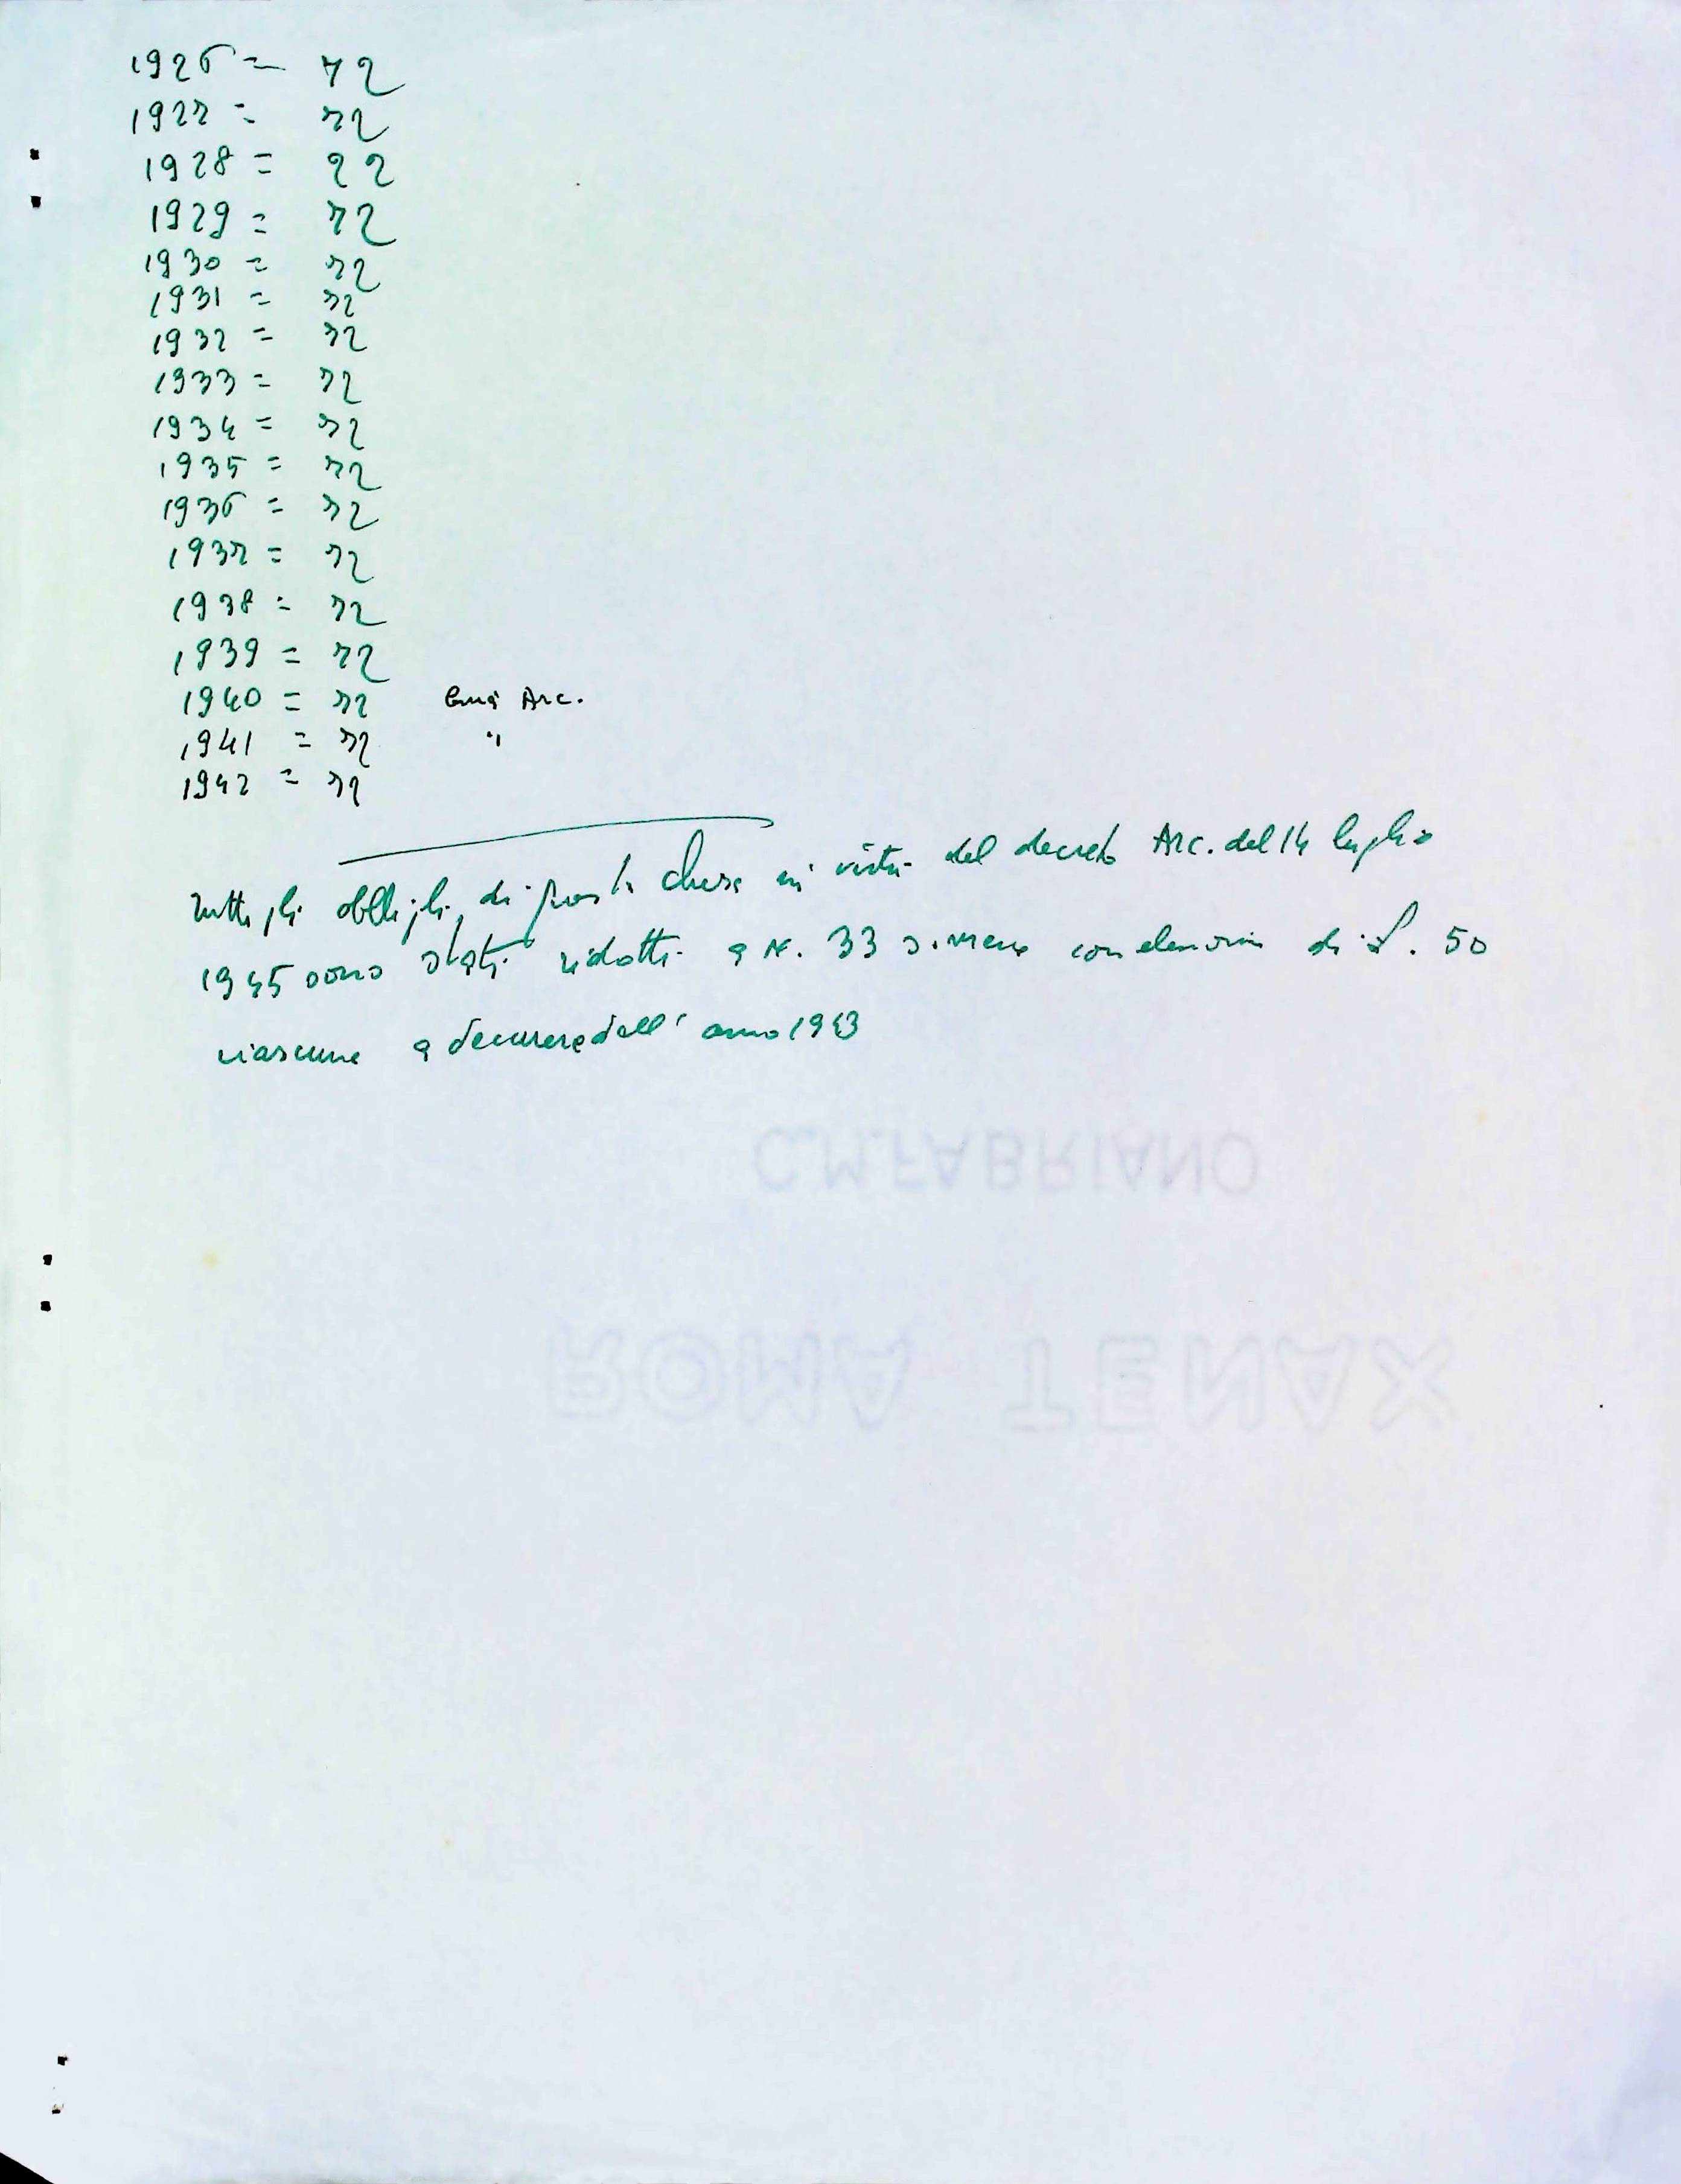 1926 = 72
1927 = 72
1928 = 72
1929 = 72
1930 = 72
1931 = 72
1932 = 72
1933 = 72
1934 = 72
1935 = 72
1936 = 72
1937 = 72
1938 = 72
1939 = 72
1940 = 72 Curia Arc.
1941 = 72 "
1942 = 72
Tutti gli obblighi di questa chiesa in virtù del decreto Arc. del 14 luglio
1945 sono stati ridotti a N. 33 S. Messe con elemosina di £. 50
ciascuna a decorrere dall' anno 1943
C.M.FABRIANO
ROMA TENAX